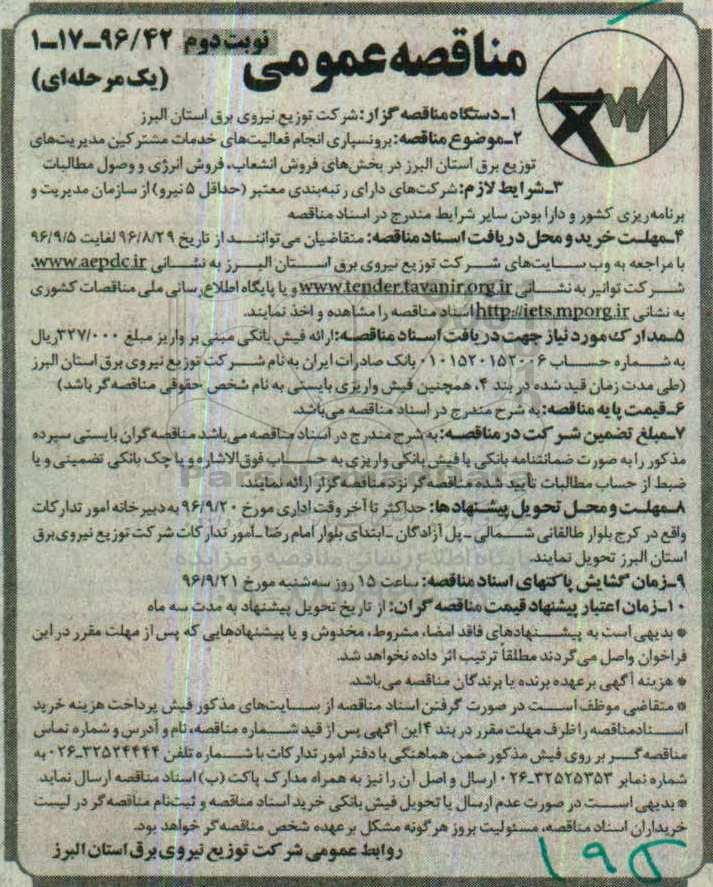 مناقصه عمومی نوبت دوم ۹۶/۴۲-۱۷-۱
(یک مرحله‌ای)
۱-دستگاه مناقصه گزار: شرکت توزیع نیروی برق استان البرز
۲-موضوع مناقصه: برونسپاری انجام فعالیت‌های خدمات مشترکین مدیریت‌های
توزیع برق استان البرز در بخش‌های فروش انشعاب، فروش انرژی و وصول مطالبات
۳-شرایط لازم: شرکت‌های دارای رتبه‌بندی معتبر (حداقل ۵ نیرو) از سازمان مدیریت و
برنامه‌ریزی کشور و دارا بودن سایر شرایط مندرج در اسناد مناقصه
۴-مهلت خرید و محل دریافت اسناد مناقصه: متقاضیان می‌توانند از تاریخ ۹۶/۸/۲۹ لغایت ۹۶/۹/۵
با مراجعه به وب سایت‌های شرکت توزیع نیروی برق استان البرز به نشانی www.aepdc.ir،
شرکت توانیر به نشانی www.tender.tavanir.org.ir و یا پایگاه اطلاع‌رسانی ملی مناقصات کشوری
به نشانی http://iets.mporg.ir اسناد مناقصه را مشاهده و اخذ نمایند.
۵-مدارک مورد نیاز جهت دریافت اسناد مناقصه: ارائه فیش بانکی مبنی بر واریز مبلغ ۳۲۷/۰۰۰ ریال
به شماره حساب ۰۱۰۱۵۲۰۱۵۲۰۰۶ بانک صادرات ایران به نام شرکت توزیع نیروی برق استان البرز
(طی مدت زمان قید شده در بند ۴، همچنین فیش واریزی بایستی به نام شخص حقوقی مناقصه‌گر باشد)
۶-قیمت پایه مناقصه: به شرح مندرج در اسناد مناقصه می‌باشد.
۷-مبلغ تضمین شرکت در مناقصه: به شرح مندرج در اسناد مناقصه می‌باشد مناقصه‌گران بایستی سپرده
مذکور را به صورت ضمانتنامه بانکی یا فیش بانکی واریزی به حساب فوق‌الاشاره و یا چک بانکی تضمینی و یا
ضبط از حساب مطالبات تأیید شده مناقصه‌گر نزد مناقصه گزار ارائه نمایند.
۸-مهلت و محل تحویل پیشنهادها: حداکثر تا آخر وقت اداری مورخ ۹۶/۹/۲۰ به دبیرخانه امور تدارکات
واقع در کرج بلوار طالقانی شمالی - پل آزادگان - ابتدای بلوار امام رضا - امور تدارکات شرکت توزیع نیروی برق
استان البرز تحویل نمایند.
۹-زمان گشایش پاکتهای اسناد مناقصه: ساعت ۱۵ روز سه‌شنبه مورخ ۹۶/۹/۲۱
۱۰-زمان اعتبار پیشنهاد قیمت مناقصه گران: از تاریخ تحویل پیشنهاد به مدت سه ماه
* بدیهی است به پیشنهادهای فاقد امضا، مشروط، مخدوش و یا پیشنهادهایی که پس از مهلت مقرر در این
فراخوان واصل می‌گردند مطلقاً ترتیب اثر داده نخواهد شد.
* هزینه آگهی برعهده برنده یا برندگان مناقصه می‌باشد.
* متقاضی موظف است در صورت گرفتن اسناد مناقصه از سایت‌های مذکور فیش پرداخت هزینه خرید
اسناد مناقصه را ظرف مهلت مقرر در بند ۴ این آگهی پس از قید شماره مناقصه، نام و آدرس و شماره تماس
مناقصه‌گر بر روی فیش مذکور ضمن هماهنگی با دفتر امور تدارکات با شماره تلفن ۳۲۵۲۴۴۴۴-۰۲۶ به
شماره نمابر ۳۲۵۲۵۳۵۳-۰۲۶ ارسال و اصل آن را نیز به همراه مدارک پاکت (ب) اسناد مناقصه ارسال نماید
* بدیهی است در صورت عدم ارسال یا تحویل فیش بانکی خرید اسناد مناقصه و ثبت‌نام مناقصه‌گر در لیست
خریداران اسناد مناقصه، مسئولیت بروز هر گونه مشکل بر عهده شخص مناقصه‌گر خواهد بود.
روابط عمومی شرکت توزیع نیروی برق استان البرز